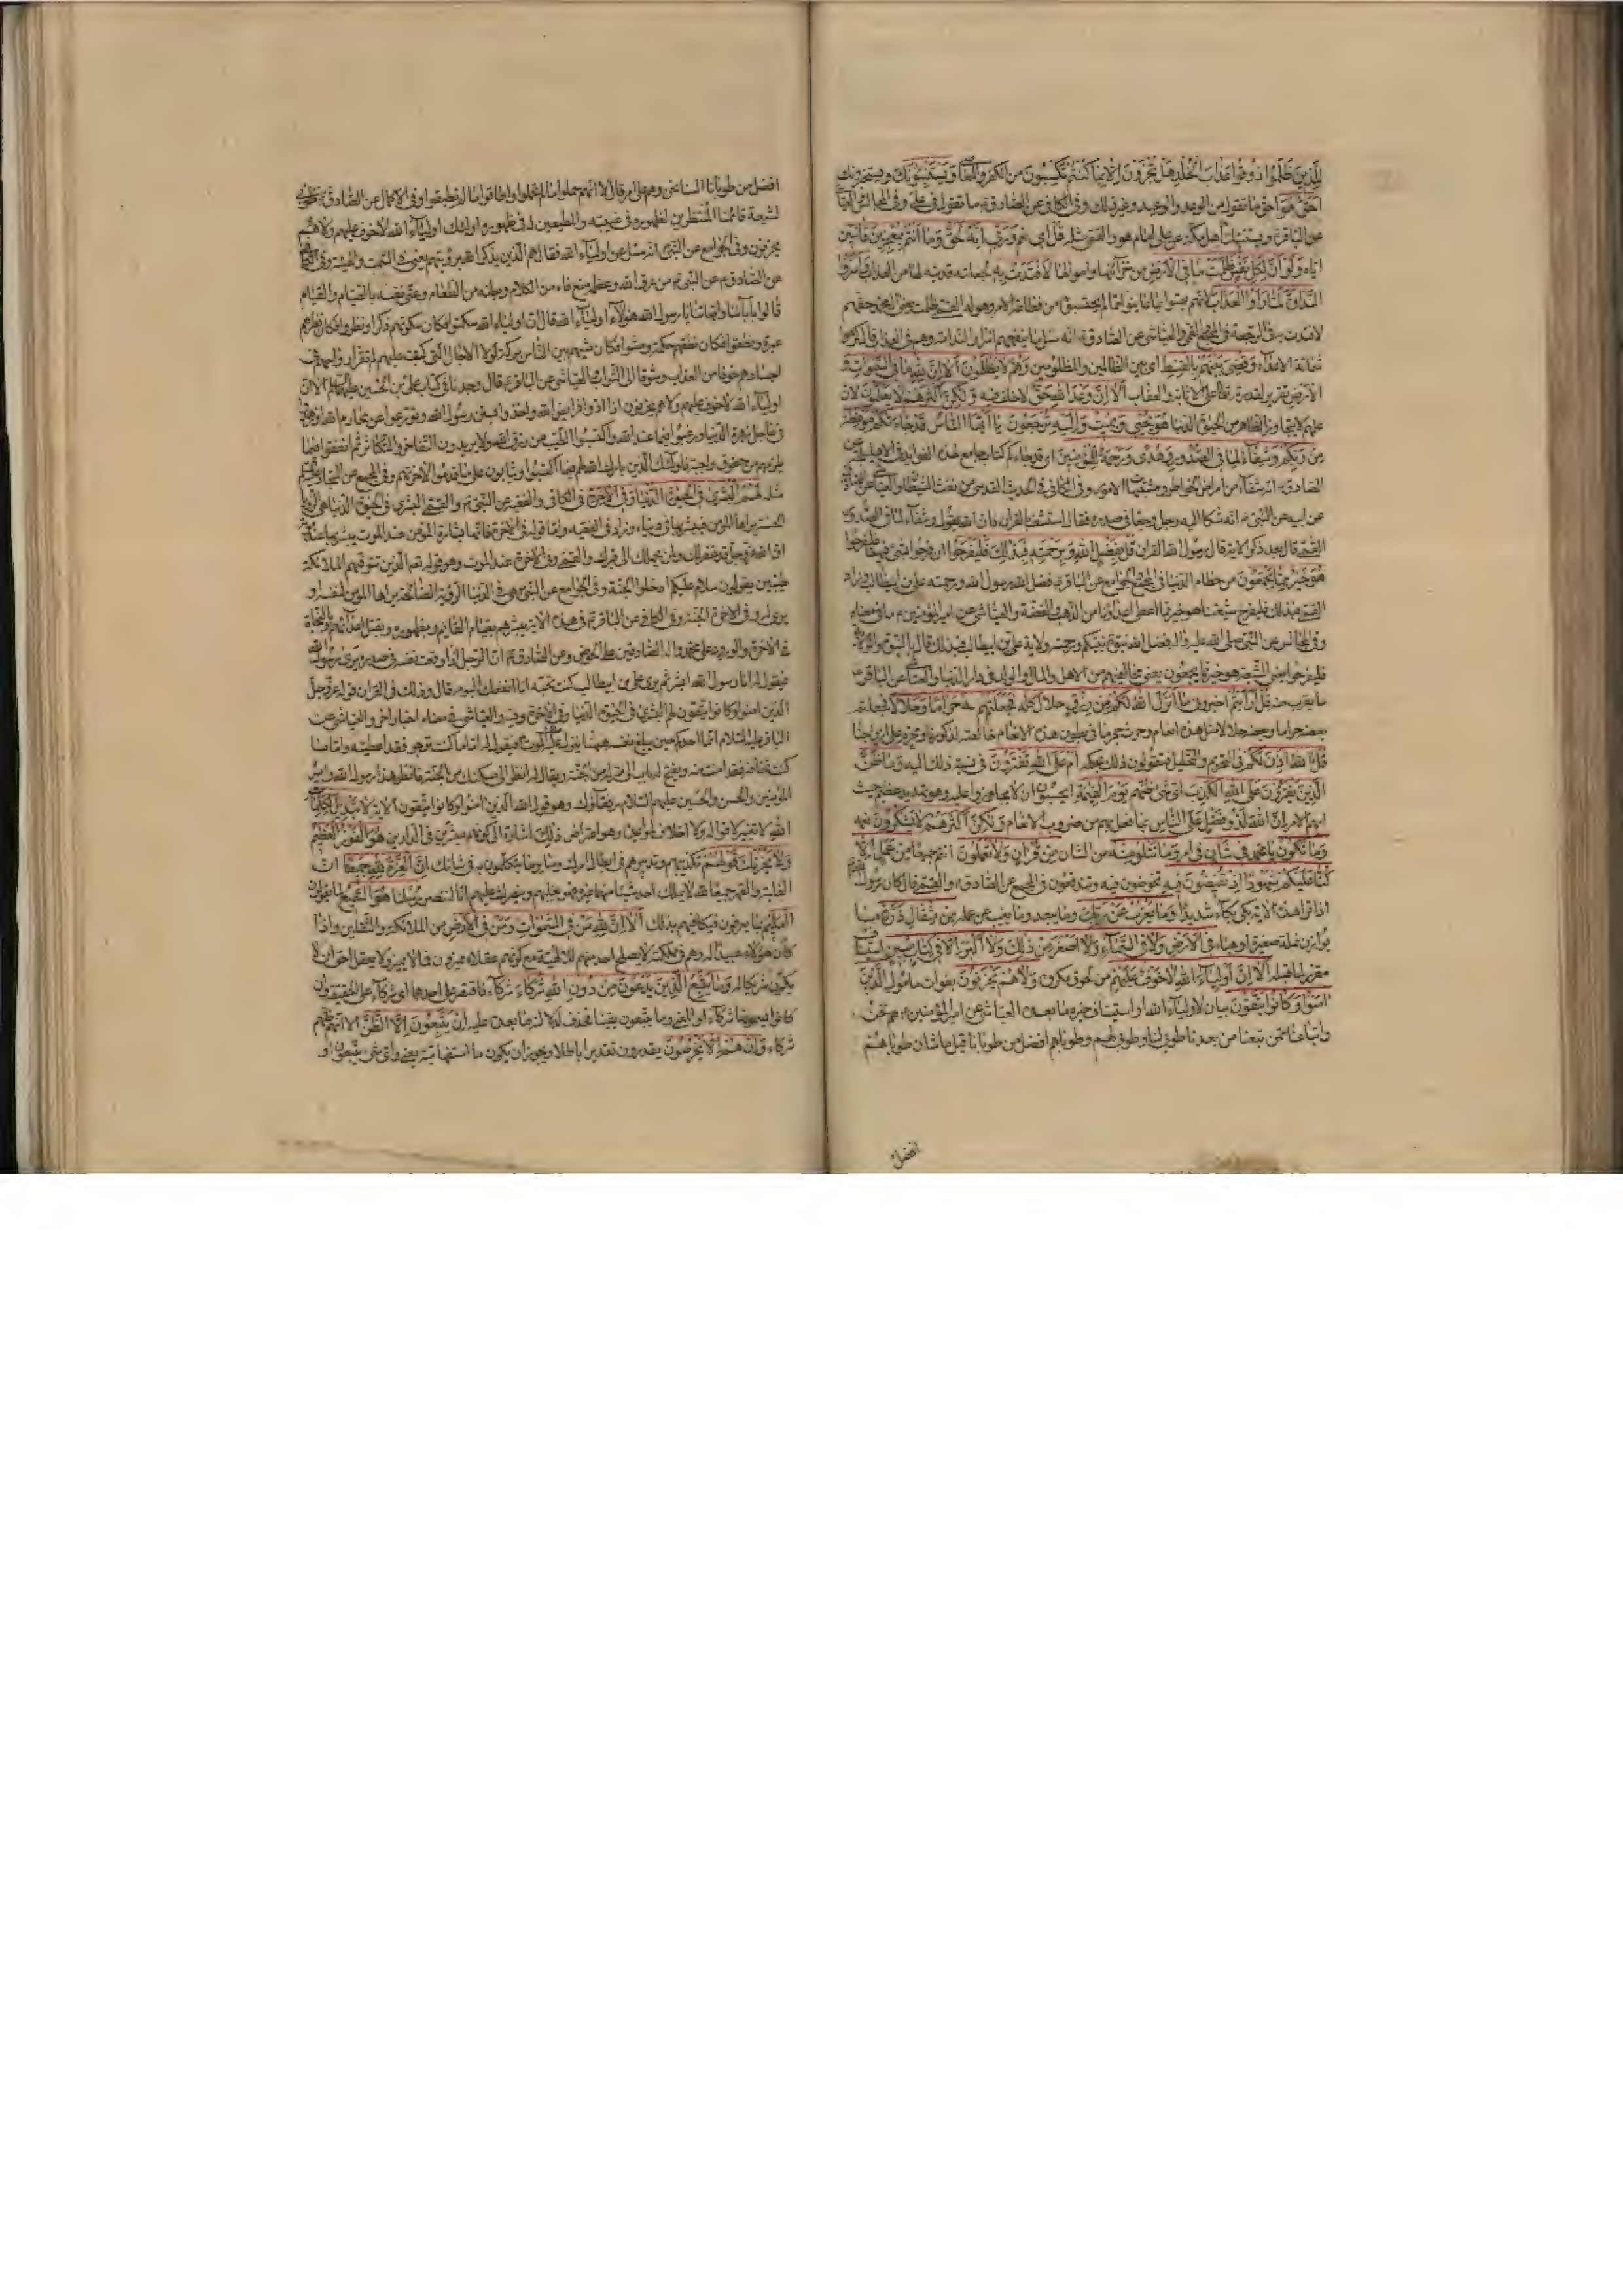 لِلَّذِينَ ظَلَمُوا ذُوقُوا عَذَابَ الْخُلْدِ هَلْ تُجْزَوْنَ إِلَّا بِمَا كُنْتُمْ تَكْسِبُونَ من الكفر والمعاصي وَيَسْتَنْبِئُونَكَ ويستخبرونك
أَحَقٌّ هُوَ احق ما تقول من الوعد والوعيد وغير ذلك وفى الكافي عن الصادق ما تقول في علي وفى المجالس
عن الباقر ويستنبئك اهل مكة عن علي امام هو والقمي مثله قُلْ إِي وَرَبِّي إِنَّهُ لَحَقٌّ وَمَا أَنْتُمْ بِمُعْجِزِينَ فائتين
اياه وَلَوْ أَنَّ لِكُلِّ نَفْسٍ ظَلَمَتْ مَا فِي الْأَرْضِ من خزائنها واموالها لَافْتَدَتْ بِهِ لجعلته فدية لها من العذاب وَأَسَرُّوا
النَّدَامَةَ لَمَّا رَأَوُا الْعَذَابَ لانهم بهتوا بما عاينوا مما لم يحتسبوه من فظاعة الامر وهوله القمي ظلمت يعنى آل محمد حقهم
لافتدت به في الرجعة في المجمع والقمي والعياشي عن الصادق انه سئل ما ينفعهم اسرار الندامة وهم في العذاب قال كرهوا
شماتة الاعداء وَقُضِيَ بَيْنَهُمْ بِالْقِسْطِ اى بين الظالمين والمظلومين وَهُمْ لَا يُظْلَمُونَ أَلَا إِنَّ لِلَّهِ مَا فِي السَّمَوَاتِ وَ
الْأَرْضِ تقرير لقدرته تعالى على الاثابة والعقاب أَلَا إِنَّ وَعْدَ اللَّهِ حَقٌّ لا خلف فيه وَلَكِنَّ أَكْثَرَهُمْ لَا يَعْلَمُونَ لان
علمهم لا يتجاوز الظاهر من الحيوة الدنيا هُوَ يُحْيِي وَيُمِيتُ وَإِلَيْهِ تُرْجَعُونَ يَا أَيُّهَا النَّاسُ قَدْ جَاءَتْكُمْ مَوْعِظَةٌ
مِنْ رَبِّكُمْ وَشِفَاءٌ لِمَا فِي الصُّدُورِ وَهُدًى وَرَحْمَةٌ لِلْمُؤْمِنِينَ اى قد جاءكم كتاب جامع لهذه الفوايد
الصادق انه شفاء من امراض الخواطر ومشتبهات الامور وفى الكافي في الحديث القدسي من نفث الشيطان والعياشي
عن ابيه عن النبي انه شكا اليه رجل وجعا في صدره فقال استشف بالقران فان الله يقول وشفاء لما في الصدور
القمي قال بعد ذكر الآية قال رسول الله القران قُلْ بِفَضْلِ اللَّهِ وَبِرَحْمَتِهِ فَبِذَلِكَ فَلْيَفْرَحُوا ان فرحوا بشئ فبهما فليفرحوا
هُوَ خَيْرٌ مِمَّا يَجْمَعُونَ من حطام الدنيا في المجمع والجوامع عن الباقر فضل الله رسول الله ورحمته علي بن ابيطالب وزاد
القمي فبذلك فليفرح شيعتنا هو خير مما اعطوا اعداؤنا من الذهب والفضة والعياشي عن امير المؤمنين ما في معناه
وفى المجالس عن النبي صلى الله عليه واله فضل الله نبوة نبيكم ورحمته ولاية علي بن ابيطالب فبذلك قال بالنبوة والولاية
فليفرحوا يعنى الشيعة هو خير مما يجمعون يعنى مخالفيهم من الاهل والمال والولد في دار الدنيا والعياشي عن الباقر
ما يقرب منه قُلْ أَرَأَيْتُمْ اخبروني مَا أَنْزَلَ اللَّهُ لَكُمْ مِنْ رِزْقٍ حلال كله فَجَعَلْتُمْ مِنْهُ حَرَامًا وَحَلَالًا فجعلتم
بعضه حراما وبعضه حلالا مثل هذه انعام وحرث حجر ما في بطون هذه الانعام خالصة لذكورنا ومحرم على ازواجنا
قُلْ آللَّهُ أَذِنَ لَكُمْ في التحريم والتحليل فتقولون ذلك بحكمه أَمْ عَلَى اللَّهِ تَفْتَرُونَ في نسبة ذلك اليه وَمَا ظَنُّ
الَّذِينَ يَفْتَرُونَ عَلَى اللَّهِ الْكَذِبَ اى شئ ظنهم يَوْمَ الْقِيَمَةِ ايحسبون ان لا يجازوا عليه وهو تهديد عظيم حيث
ابهم الامر إِنَّ اللَّهَ لَذُو فَضْلٍ عَلَى النَّاسِ بما فعل بهم من ضروب الانعام وَلَكِنَّ أَكْثَرَهُمْ لَا يَشْكُرُونَ نعمه
وَمَا تَكُونُ يا محمد فِي شَأْنٍ في امر وَمَا تَتْلُو مِنْهُ من الشان مِنْ قُرْآنٍ وَلَا تَعْمَلُونَ انتم جميعا مِنْ عَمَلٍ إِلَّا
كُنَّا عَلَيْكُمْ شُهُودًا إِذْ تُفِيضُونَ فِيهِ تخوضون فيه وتندفعون في المجمع عن الصادق والقمي قال كان رسول الله
اذا قرا هذه الآية بكى بكاء شديدا وَمَا يَعْزُبُ عَنْ رَبِّكَ وما يبعد وما يغيب عن علمه مِنْ مِثْقَالِ ذَرَّةٍ ما
يوازن نملة صغيرة او هباء فِي الْأَرْضِ وَلَا فِي السَّمَاءِ وَلَا أَصْغَرَ مِنْ ذَلِكَ وَلَا أَكْبَرَ إِلَّا فِي كِتَابٍ مُبِينٍ استيناف
مقرر لما قبله أَلَا إِنَّ أَوْلِيَاءَ اللَّهِ لَا خَوْفٌ عَلَيْهِمْ من لحوق مكروه وَلَا هُمْ يَحْزَنُونَ بفوات مأمول الَّذِينَ
آمَنُوا وَكَانُوا يَتَّقُونَ بيان لاولياء الله او استيناف خبره ما بعده العياشي عن امير المؤمنين هم نحن
واتباعنا ممن تبعنا من بعدنا طوبى لنا وطوبى لهم وطوباهم افضل من طوبانا قيل ما شان طوباهم
افضل
افضل من طوبانا السنا نحن وهم على امر قال لا انهم حملوا ما لم تحملوا واطاقوا ما لم تطيقوا وفى الاكمال عن الصادق طوبى
لشيعة قائمنا المنتظرين لظهوره في غيبته والمطيعين له في ظهوره اولئك اولياء الله لا خوف عليهم ولا هم
يحزنون وفى الجوامع عن النبي انه سئل عن اولياء الله فقال هم الذين يذكر الله برؤيتهم يعنى في السمت والهيئة وفى الكافي
عن الصادق عن النبي من عرف الله وعظمه منع فاه من الكلام وبطنه من الطعام وعنى نفسه بالصيام والقيام
قالوا بابائنا وامهاتنا يا رسول الله هؤلاء اولياء الله قال ان اولياء الله سكتوا فكان سكوتهم ذكرا ونظروا فكان نظرهم
عبرة ونطقوا فكان نطقهم حكمة ومشوا فكان مشيهم بين الناس بركة لولا الاجال التي كتبت عليهم لم تقر ارواحهم في
اجسادهم خوفا من العذاب وشوقا الى الثواب والعياشي عن الباقر قال وجدنا في كتاب علي بن الحسين عليهما السلام الا ان
اولياء الله لا خوف عليهم ولا هم يحزنون اذا ادوا فرايض الله واخذوا بسنن رسول الله وتورعوا عن محارم الله وزهدوا
في عاجل زهرة الدنيا ورغبوا فيما عند الله واكتسبوا الطيب من رزق الله ولا يريدون التفاخر والتكاثر ثم انفقوا فيما
يلزمهم من حقوق واجبة فاولئك الذين بارك الله لهم فيما اكتسبوا ويثابون على ما قدموا لاخرتهم وفى المجمع عن السجاد
مثله لَهُمُ الْبُشْرَى فِي الْحَيَوةِ الدُّنْيَا وَفِي الْآخِرَةِ في الكافي والفقيه عن النبي والقمي البشرى في الحيوة الدنيا هي الرؤيا
الحسنة يراها المؤمن فيبشر بها في دنياه وزاد في الفقيه واما قوله في الاخرة فانها بشارة المؤمن عند الموت يبشر بها عند موته
ان الله عز وجل قد غفر لك ولمن يحملك الى قبرك والقمي وفى الاخرة عند الموت وهو قوله تعم الذين تتوفيهم الملائكة
طيبين يقولون سلام عليكم ادخلوا الجنة وفى الجوامع عن النبي هي في الدنيا الرؤية الصالحة يراها المؤمن لنفسه او
يرى له وفى الاخرة الجنة وفى الكافي عن الباقر في هذه الاية يبشرهم بقيام القايم وبظهوره وبقتل اعدائهم وبالنجاة
في الاخرة والورود على محمد واله الصادقين على الحوض وعن الصادق ان الرجل اذا وقعت نفسه في صدره يرى رسول الله
فيقول له انا رسول الله ابشر ثم يرى علي بن ابيطالب كنت تحبه انا انفعك اليوم قال وذلك في القران قوله عز وجل
الذين امنوا وكانوا يتقون لهم البشرى في الحيوة الدنيا وفى الاخرة وفيه والعياشي في معناه اخبار اخر والعياشي عن
الباقر عليه السلام انما احدكم حين يبلغ نفسه ههنا ينزل عليه ملك الموت فيقول له اما ما كنت ترجو فقد اعطيته واما ما
كنت تخافه فقد امنت منه ويفتح له باب الى منزله من الجنة ويقال له انظر الى مسكنك من الجنة فانظر هذا رسول الله وامير
المؤمنين والحسن والحسين عليهم السلام رفقاؤك وهو قول الله الذين امنوا وكانوا يتقون الاية لَا تَبْدِيلَ لِكَلِمَاتِ
اللَّهِ لا تغيير لاقواله ولا اخلاف لمواعيده وهو اعتراض ذَلِكَ اشارة الى كونهم مبشرين في الدارين هُوَ الْفَوْزُ الْعَظِيمُ
وَلَا يَحْزُنْكَ قَوْلُهُمْ تكذيبهم وتدبيرهم في ابطال امرك وساير ما يتكلمون به في شانك إِنَّ الْعِزَّةَ لِلَّهِ جَمِيعًا ان
الغلبة والقهر جميعا لله لا يملك احد شيئا منهما غيره فهو يغلبهم وينصرك عليهم انا لننصر رسلنا هُوَ السَّمِيعُ لما يقولون
الْعَلِيمُ بما يعزمون فيكافيهم بذلك أَلَا إِنَّ لِلَّهِ مَنْ فِي السَّمَوَاتِ وَمَنْ فِي الْأَرْضِ من الملائكة والثقلين واذا
كان هؤلاء عبيدا له وهم في مملكته لا يصلح احد منهم للالهية مع كونهم عقلاء مميزين فما لا يميز ولا يعقل احق ان لا
يكون شريكا له وَمَا يَتَّبِعُ الَّذِينَ يَدْعُونَ مِنْ دُونِ اللَّهِ شُرَكَاءَ شركاء فاقتصر على احدهما اى شركاء على الحقيقة وان
كانوا يسمونها شركاء او المعنى وما يتبعون يقينا فحذف لدلالة ما بعده عليه إِنْ يَتَّبِعُونَ إِلَّا الظَّنَّ الا ظنهم انهم
شركاء وَإِنْ هُمْ إِلَّا يَخْرُصُونَ يقدرون تقديرا باطلا ويجوز ان يكون ما استفهامية يعنى واى شئ يتبعون او